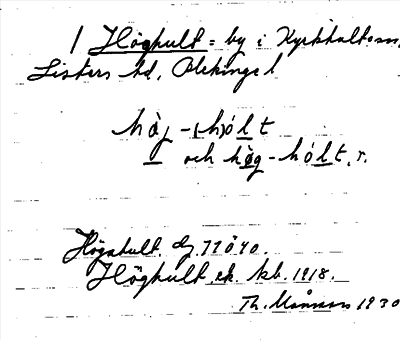 1 Höghult = by i Kyrkhults sn,
Listers hd, Blekinge l
håj - (h)ólt
och hög - hólt, r.
Högahult. dj. 11040.
Höghult ek. kb. 1918.
Th. Månsson 1930